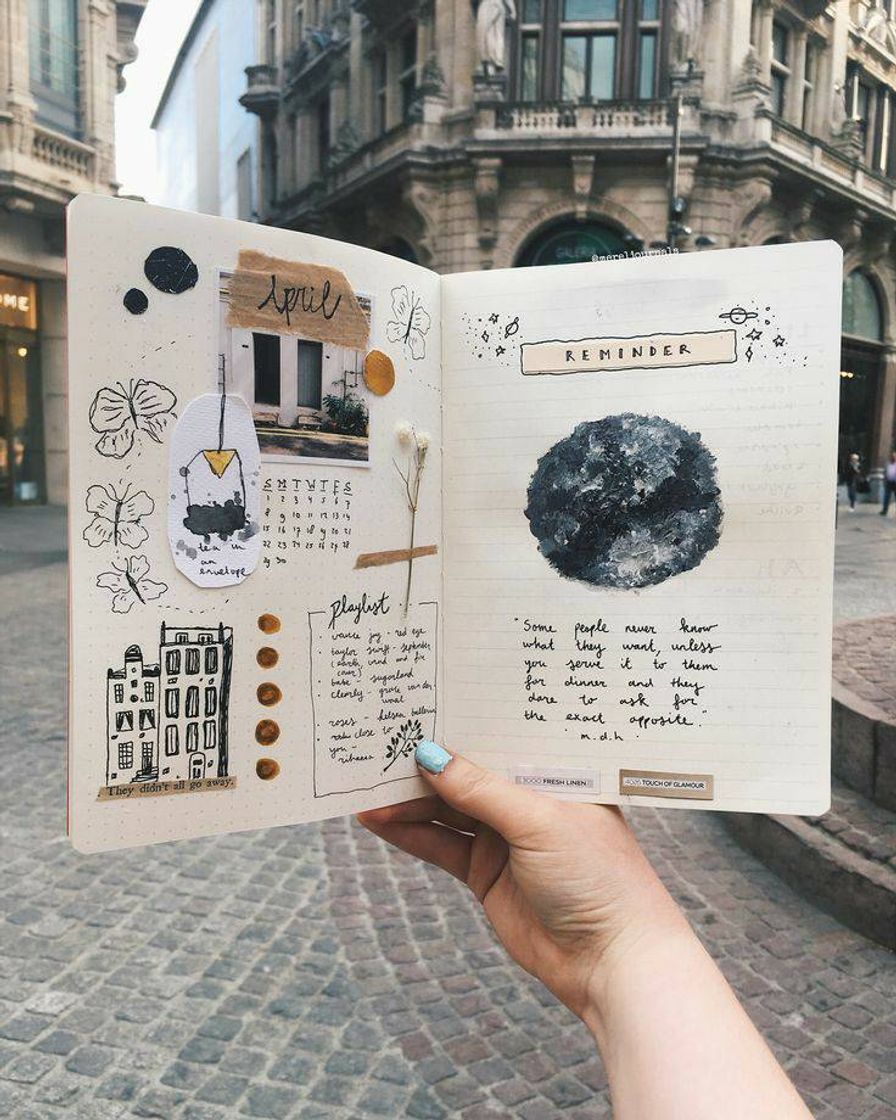 OME
GALERI
@mereljournals
April
tea in
an
envelope
S M T W T F S
1 2 3 4 5 6 7
8 9 10 11 12 13 14
15 16 17 18 19 20 21
22 23 24 25 26 27 28
29 30
playlist
vance joy - red eye
taylor swift - september
(earth, wind and fire
cover)
base - sugarland
clearly - grace van der
waal
roses - 
close to
you -
rihanna
They didn't all go away.
REMINDER
"Some people never know
what they want, unless
you serve it to them
for dinner and they
dare to ask for
the exact opposite."
m.d.h.
3000 FRESH LINEN
4026 TOUCH OF GLAMOUR